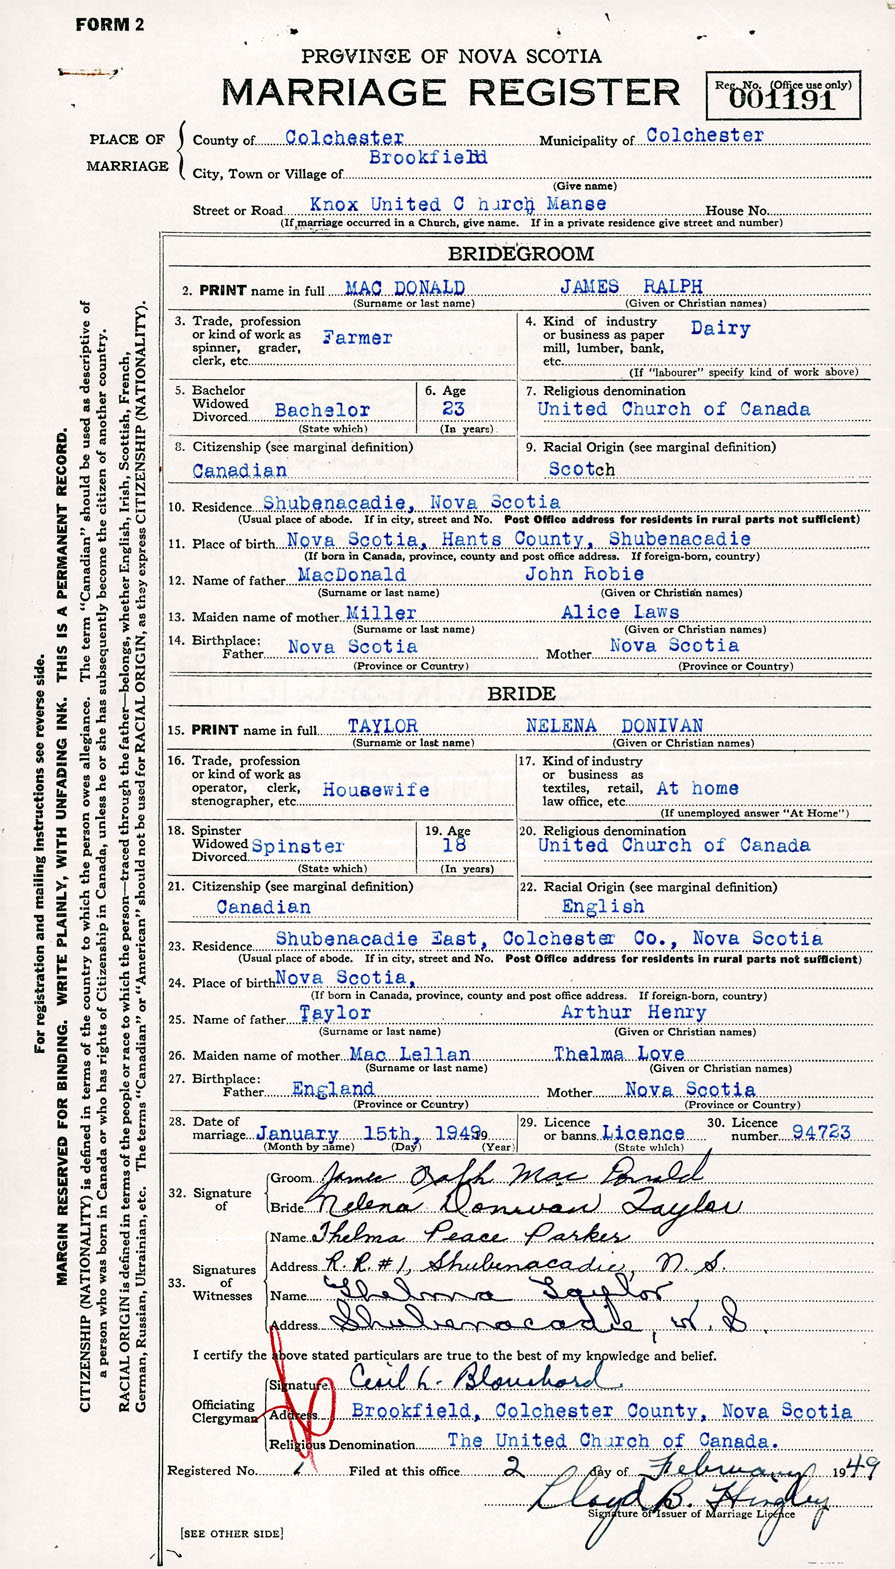 FORM 2
PROVINCE OF NOVA SCOTIA
MARRIAGE REGISTER
Reg. No. (Office use only)
001191
PLACE OF MARRIAGE
County of Colchester Municipality of Colchester
City, Town or Village of Brookfield
(Give name)
Street or Road Knox United C hurch Manse House No.
(If marriage occurred in a Church, give name. If in a private residence give street and number)
BRIDEGROOM
2. PRINT name in full MAC DONALD JAMES RALPH
(Surname or last name) (Given or Christian names)
3. Trade, profession or kind of work as spinner, grader, clerk, etc. Farmer
4. Kind of industry or business as paper mill, lumber, bank, etc. Dairy
(If "labourer" specify kind of work above)
5. Bachelor Widowed Divorced Bachelor
(State which)
6. Age 23
(In years)
7. Religious denomination
United Church of Canada
8. Citizenship (see marginal definition)
Canadian
9. Racial Origin (see marginal definition)
Scotch
10. Residence Shubenacadie, Nova Scotia
(Usual place of abode. If in city, street and No. Post Office address for residents in rural parts not sufficient)
11. Place of birth Nova Scotia, Hants County, Shubenacadie
(If born in Canada, province, county and post office address. If foreign-born, country)
12. Name of father MacDonald John Robie
(Surname or last name) (Given or Christian names)
13. Maiden name of mother Miller Alice Laws
(Surname or last name) (Given or Christian names)
14. Birthplace: Father Nova Scotia Mother Nova Scotia
(Province or Country) (Province or Country)
BRIDE
15. PRINT name in full TAYLOR NELENA DONIVAN
(Surname or last name) (Given or Christian names)
16. Trade, profession or kind of work as operator, clerk, stenographer, etc. Housewife
17. Kind of industry or business as textiles, retail, law office, etc. At home
(If unemployed answer "At Home")
18. Spinster Widowed Divorced Spinster
(State which)
19. Age 18
(In years)
20. Religious denomination
United Church of Canada
21. Citizenship (see marginal definition)
Canadian
22. Racial Origin (see marginal definition)
English
23. Residence Shubenacadie East, Colchester Co., Nova Scotia
(Usual place of abode. If in city, street and No. Post Office address for residents in rural parts not sufficient)
24. Place of birth Nova Scotia,
(If born in Canada, province, county and post office address. If foreign-born, country)
25. Name of father Taylor Arthur Henry
(Surname or last name) (Given or Christian names)
26. Maiden name of mother Mac Lellan Thelma Love
(Surname or last name) (Given or Christian names)
27. Birthplace: Father England Mother Nova Scotia
(Province or Country) (Province or Country)
28. Date of marriage January 15th, 1949
(Month by name) (Day) (Year)
29. Licence or banns Licence
(State which)
30. Licence number 94723
32. Signature of
Groom James Ralph Mac Donald
Bride Nelena Donivan Taylor
33. Signatures of Witnesses
Name Thelma Peace Parker
Address R.R. #1, Shubenacadie, N. S.
Name Thelma Taylor
Address Shubenacadie, N. S.
I certify the above stated particulars are true to the best of my knowledge and belief.
Officiating Clergyman
Signature Cecil L. Blanchard
Address Brookfield, Colchester County, Nova Scotia
Religious Denomination The United Church of Canada.
Registered No. 1 Filed at this office 2 day of February 1949
Lloyd B. Hingley
Signature of Issuer of Marriage Licence
[SEE OTHER SIDE]
For registration and mailing instructions see reverse side.
MARGIN RESERVED FOR BINDING. WRITE PLAINLY, WITH UNFADING INK. THIS IS A PERMANENT RECORD.
CITIZENSHIP (NATIONALITY) is defined in terms of the country to which the person owes allegiance. The term "Canadian" should be used as descriptive of
a person who was born in Canada or who has rights of Citizenship in Canada, unless he or she has subsequently become the citizen of another country.
RACIAL ORIGIN is defined in terms of the people or race to which the person—traced through the father—belongs, whether English, Irish, Scottish, French,
German, Russian, Ukrainian, etc. The terms "Canadian" or "American" should not be used for RACIAL ORIGIN, as they express CITIZENSHIP (NATIONALITY).